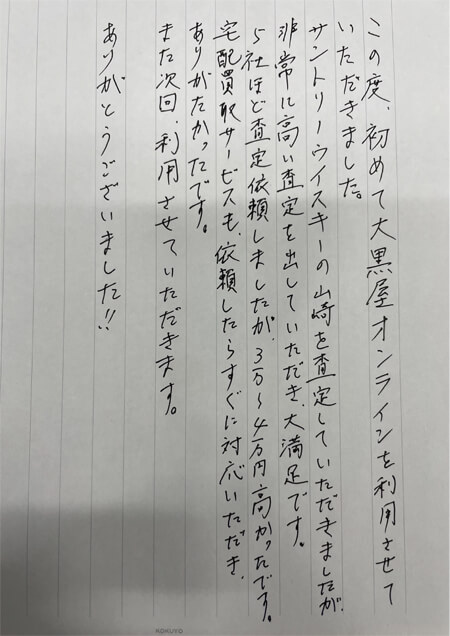 この度、初めて大黒屋オンラインを利用させて
いただきました。
サントリーウイスキーの山崎を査定していただきましたが、
非常に高い査定を出していただき、大満足です。
5社ほど査定依頼しましたが、3万~4万円高かったです。
宅配買取サービスも、依頼したらすぐに対応いただき、
ありがたかったです。
また次回、利用させていただきます。
ありがとうございました!!
KOKUYO